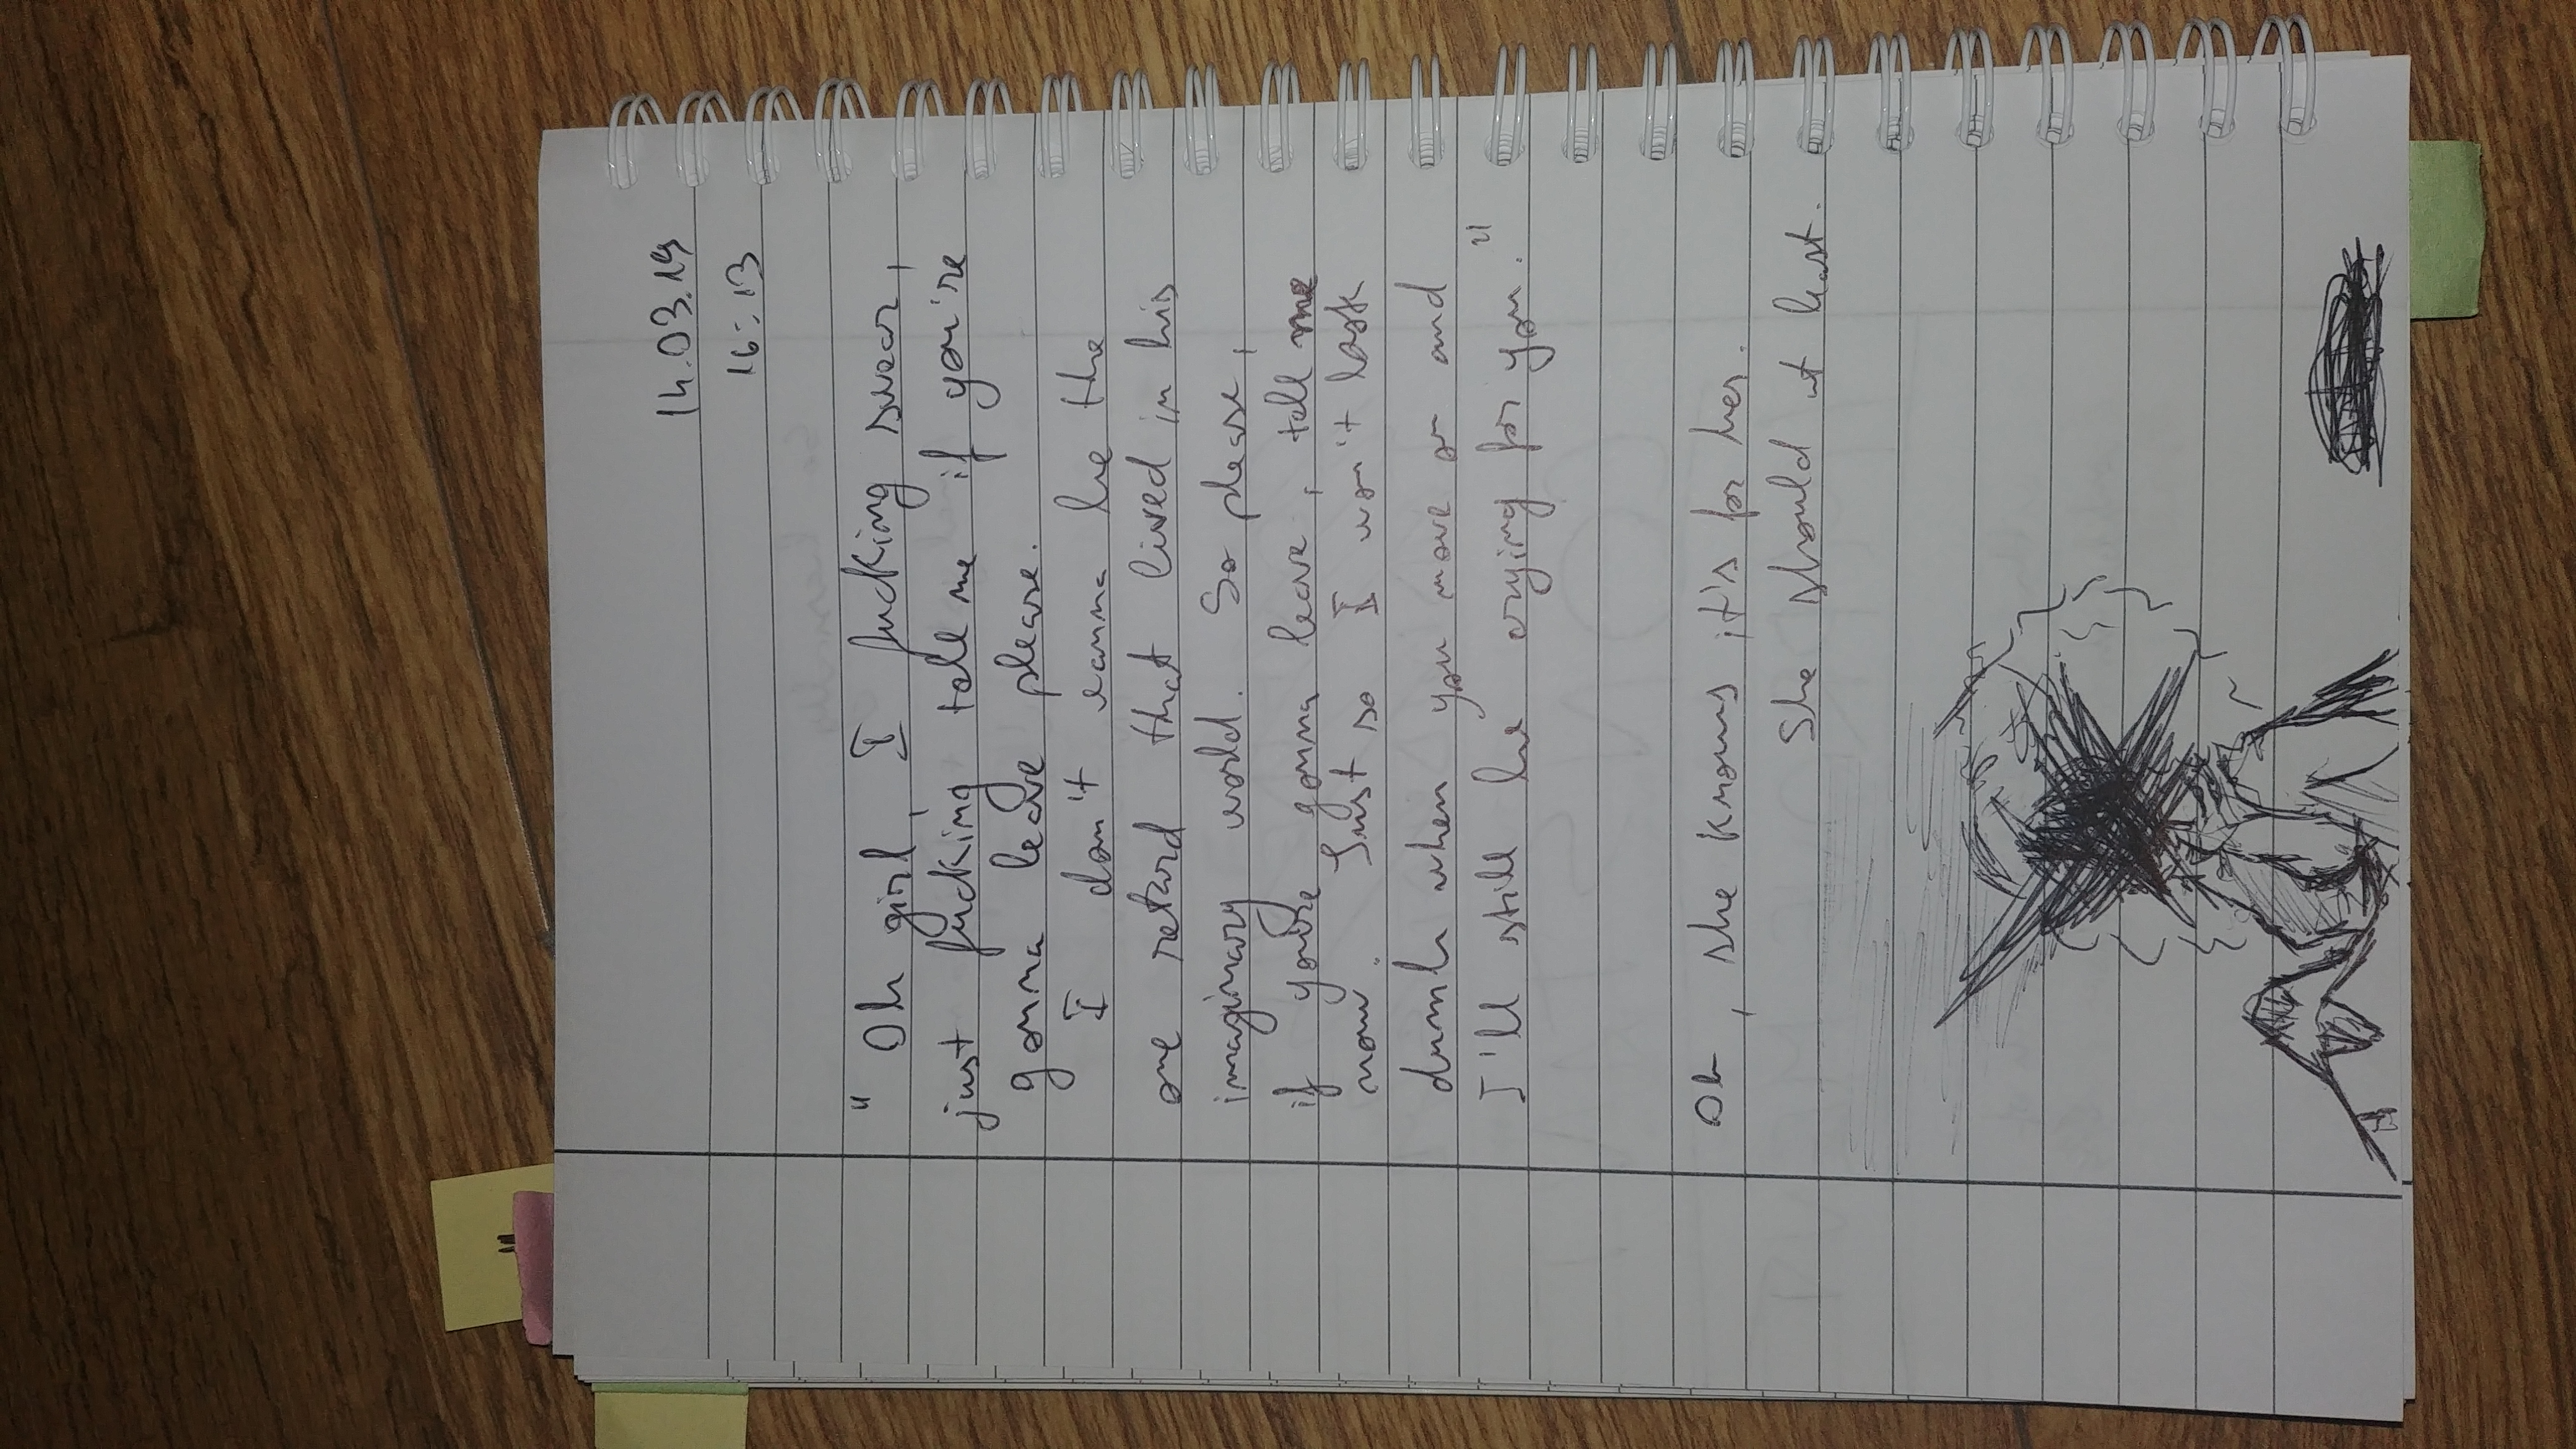 14.03.19
16:13
" Oh girl, I fucking swear,
just fucking tell me if you're
gonna leave please.
I don't wanna be the
one retard that lived in his
imaginary world. So please,
if you're gonna leave, tell me
now. Just so I won't look
dumb when you move on and
I'll still be crying for you."
Oh, she knows it's for her.
She should at least.